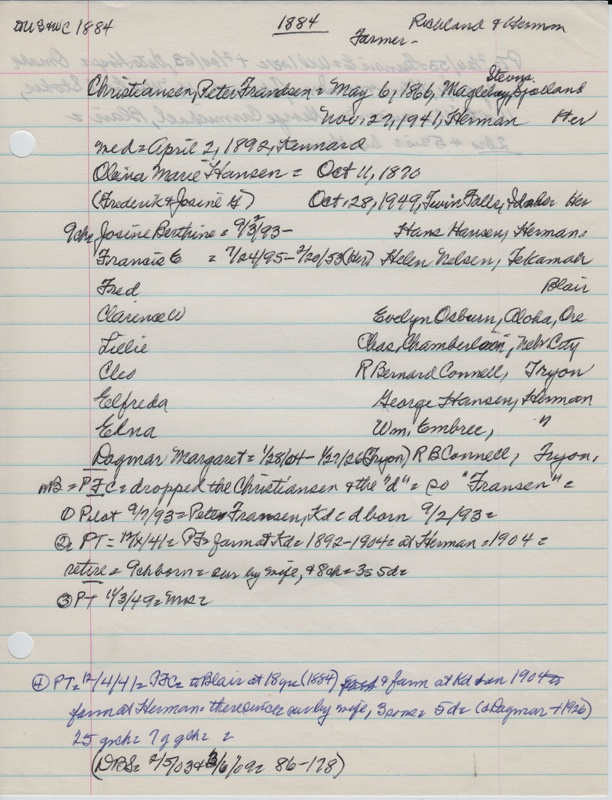 DUS&WC 1884 1884 Richland & Herman
Farmer-
Stevns,
Christiansen, Peter Frandsen = May 6, 1866, Magleby, Sjalland
Nov. 27, 1941, Herman Her
med = April 2, 1892, Kennard
Oleina Marie Hansen = Oct 11, 1870
(Frederik & Josine H) Oct. 28, 1949, Twin Falls, Idaho Her
9ch = Josine Berthine = 9/2/93- Hans Hansen, Herman =
Francis E = 7/24/95-2/20/53(Her) Helen Nelsen, Tekamah
Fred Blair
Clarence W Evelyn Osburn, Aloha, Ore
Lillie Chas. Chamberlain, Neb City
Cleo R Bernard Connell, Tryon
Elfreda George Hansen, Herman
Edna Wm. Embree, "
Dagmar Margaret = 1/28/04-1/27/26(Tryon) R B Connell, Tryon,
MB = PFC = dropped the Christiansen & the "d" = so "Fransen" =
① Pilot 9/7/93 = Peter Fransen, Kd = d born 9/2/93 =
② PT = 12/4/41 = PFs farm at Kd = 1892-1904 = at Herman = 1904 =
retire = 9ch born = sur by wife, & 8ch = 3s 5d =
③ PT 11/3/49 = Mrs =
④ PT = 12/4/41 = PFC = to Blair at 18yrs (1884) & farm at Kd 1904
farm at Herman = there since = sur by wife, 3 sons = 5d = (Dagmar +1926)
25 grch = 7 g gch = =
(DBS = 2/5/03 & 3/6/09 = 86-178)